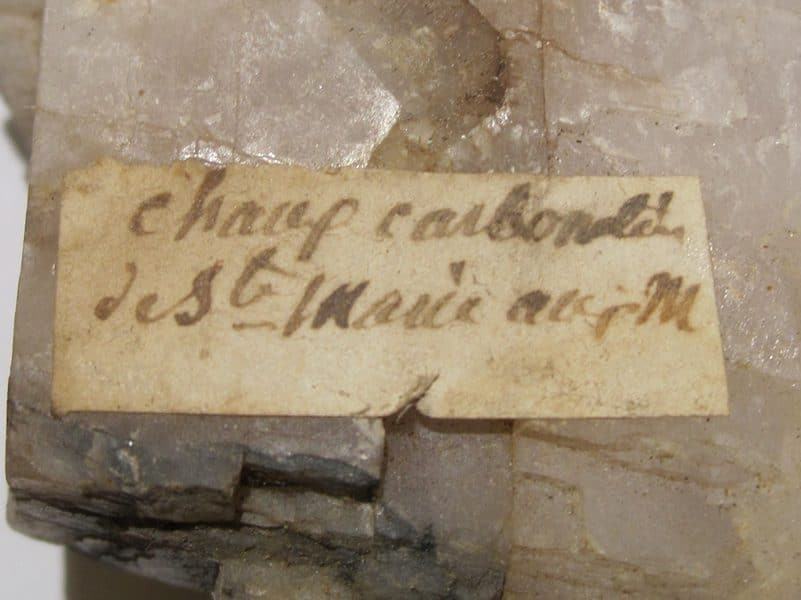 chaux carbonatée
de Ste Marie aux M